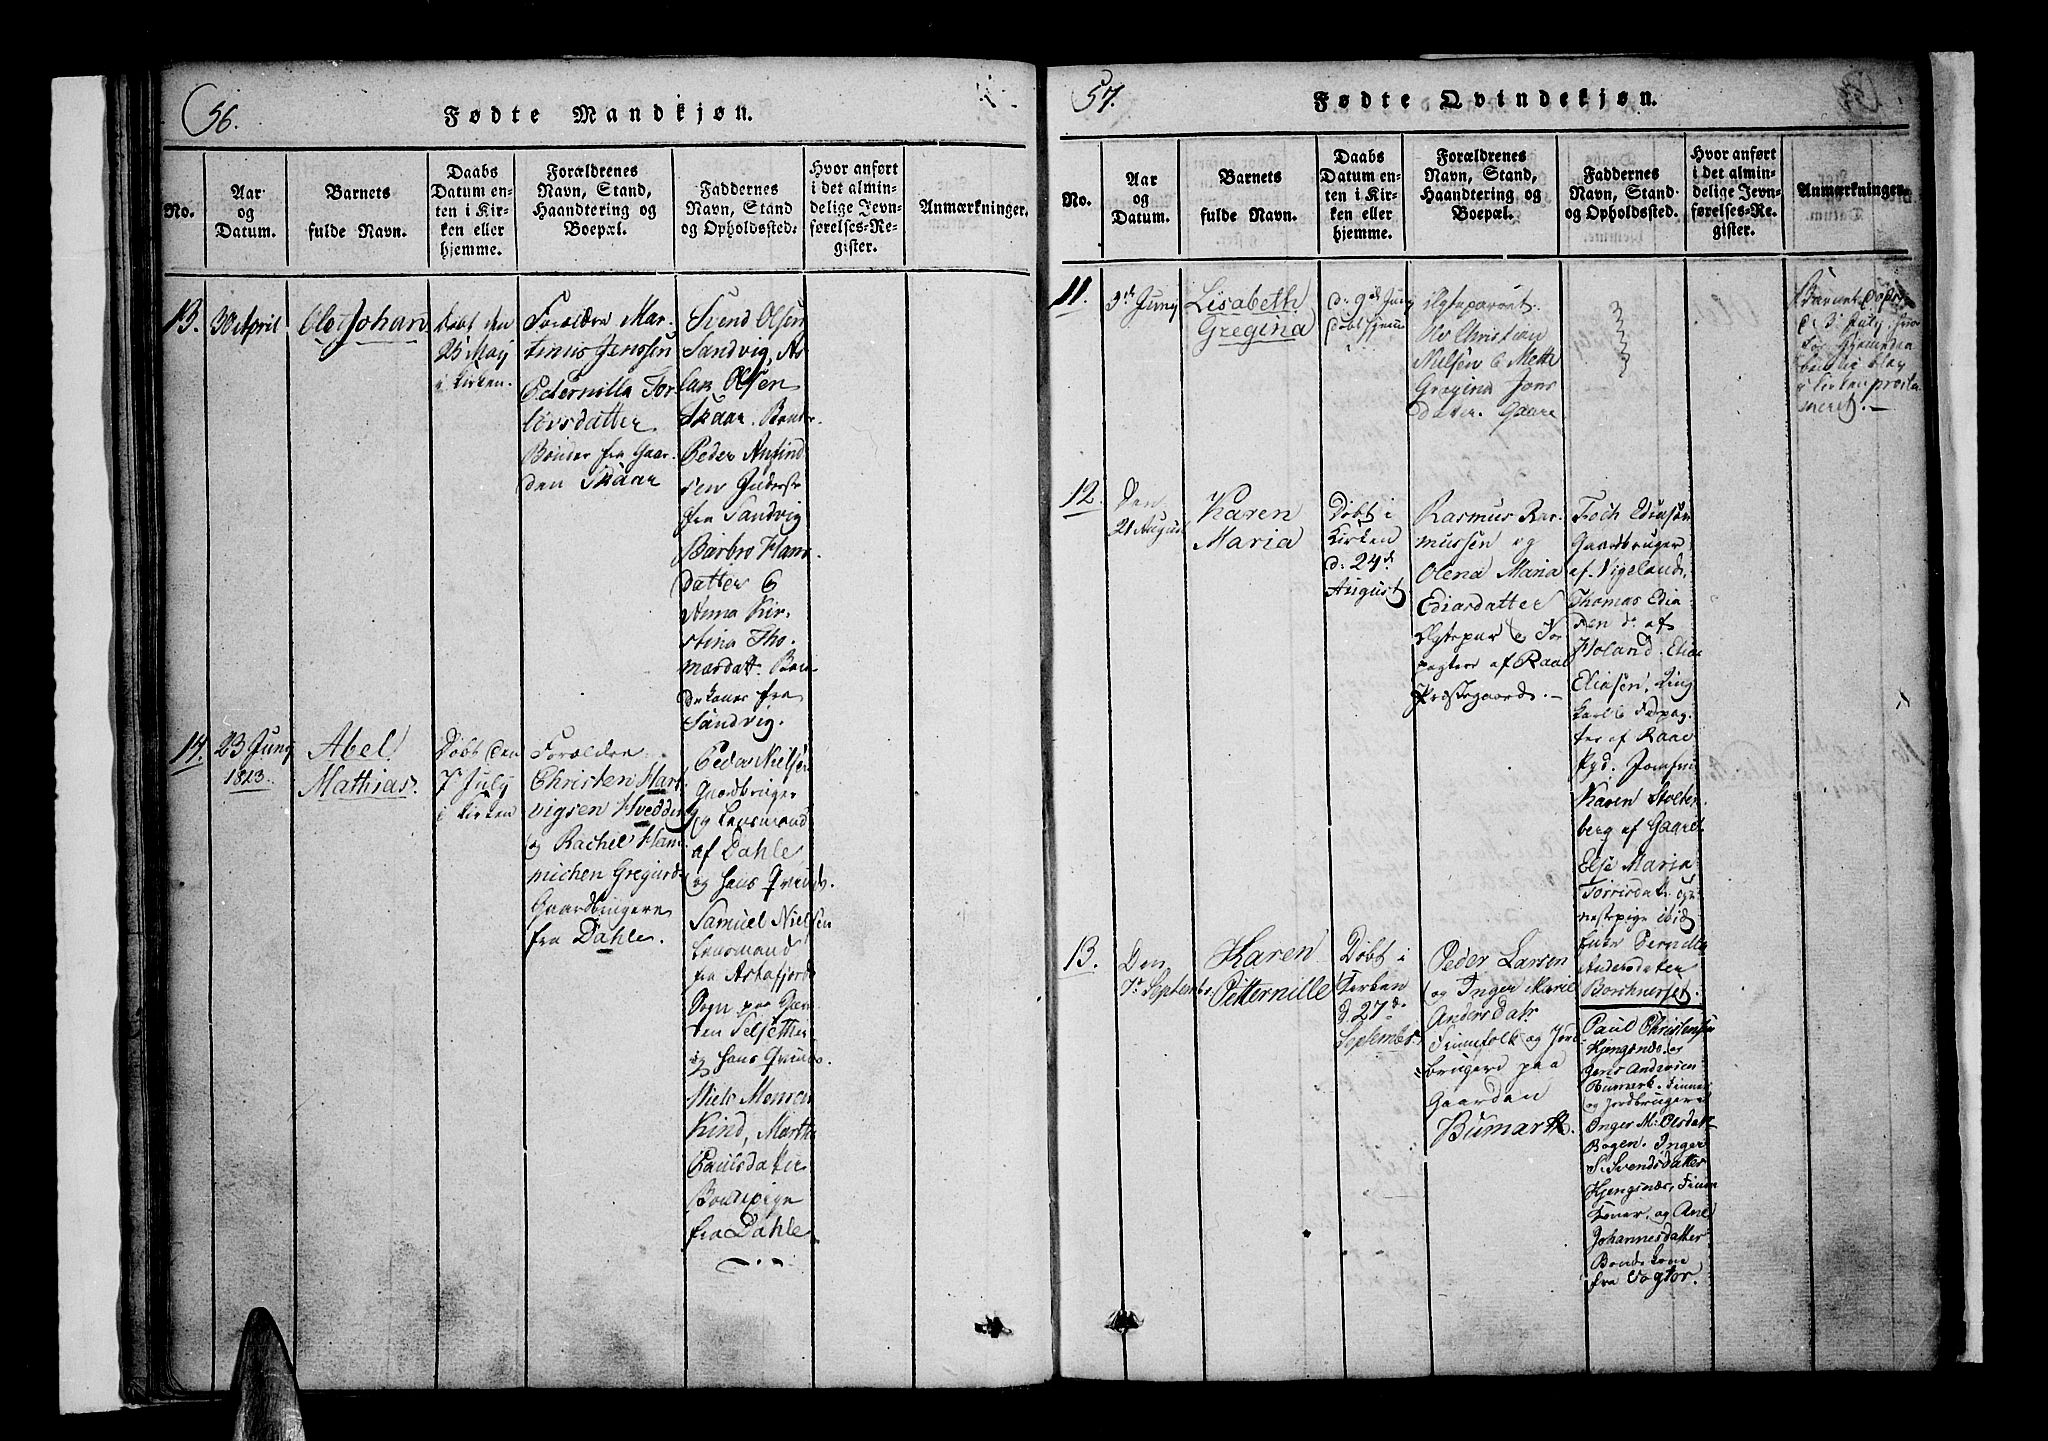 56.
Fødte Mandkjøn.
No.
Aar
og
Datum.
Barnets
fulde Navn.
Daabs
Datum en-
ten i Kir-
ken eller
hjemme.
Forældrenes
Navn, Stand,
Haandtering og
Boepæl.
Faddernes
Navn, Stand
og Opholdssted.
Hvor anført
i det almin-
delige Jevn-
førelses-Re-
gister.
Anmærkninger.
13.
30 April
Ole Johan
Døbt den
25 May
i Kirken.
Forældre Mar-
tinus Jenssen
Peternilla Tor-
lovsdatter
Bønder fra Gaar-
den Skaar
Svend Olsen
Sandvig, As-
lak Olsen
Skaar. Bønder.
Peder Anfind
sen
fra Sandvig
Barbro Hans-
datter &
Anna Kir-
stina Tho-
masdatt. Bon-
dekoner fra
Sandvig.
14.
23 Juny
1823.
Abel
Mathias.
Døbt den
7 July
i Kirken
Forældre
Christen Hart-
vigsen Hvedding
og Rachel Han-
michen Gregusd.
Gaardbrugere
fra Dahle.
Peder Nielsen
Gaardbruger
og Lensmand
af Dahle
og hans Qvinde.
Samuel Nielsen
Lensmand
fra Astafjord
Sogn paa Gaar-
den Selsetter
og hans Qvinde.
Niels Monsen
Kind, Martha
Paulsdatter
Bondepige
fra Dahle.
57.
Fødte Qvindekjøn.
No.
Aar
og
Datum.
Barnets
fulde Navn.
Daabs
Datum en-
ten i Kir-
ken eller
hjemme.
Forældrenes
Navn, Stand,
Haandtering og
Boepæl.
Faddernes
Navn, Stand
og Opholdssted.
Hvor anført
i det almin-
delige Jevn-
førelses-Re-
gister.
Anmærkninger.
11.
3de Juny
Lisabeth
Gregina
d. 9de Juny
døbt hjemme
Ægteparret
Ole Christian
Nielsen & Mette
Gregina Jons
Datter. Gaare
Barnet
d. 3 July
for
blev
i Kirken præsen-
teret.
12.
Den
21 August
Karen
Maria
Døbt i
Kirken
d. 24de
August
Rasmus Ras-
mussen og
Olena Maria
Ediasdatter
Ægtepar & For-
pagtere af Raae
Præstegaard.
Foch Ediasen
Gaardbruger
af Vigeland.
Thomas Edia
sen do. af
Holand. Elias
Eliasen, Ung
karl & Forpag-
ter af Raae
Pgd. Jomfru
Karen Stolten-
berg af Gaare.
Else Maria
Torrisdatt.
ibid
Pernille
Andersdatter
Borchnerset.
13.
Den
7de September
Karen
Petternille
Døbt i
Kirken
d. 27de
September
Peder Larsen
og Inger Marie
Andersdatr
Finnefolk og Jord-
brugere paa
Gaarden
Bumark.
Paul Christensen
Kjengsnæs. og
Jens Andersen
Bumark. Finner
og Jordbrugere
Inger M. Olsdatr
Bogen. Inger
S. Svendsdatter
Kjengsnæs, Finne
koner, og Ane
Johannesdatter
Bondekone
fra Vogtor.